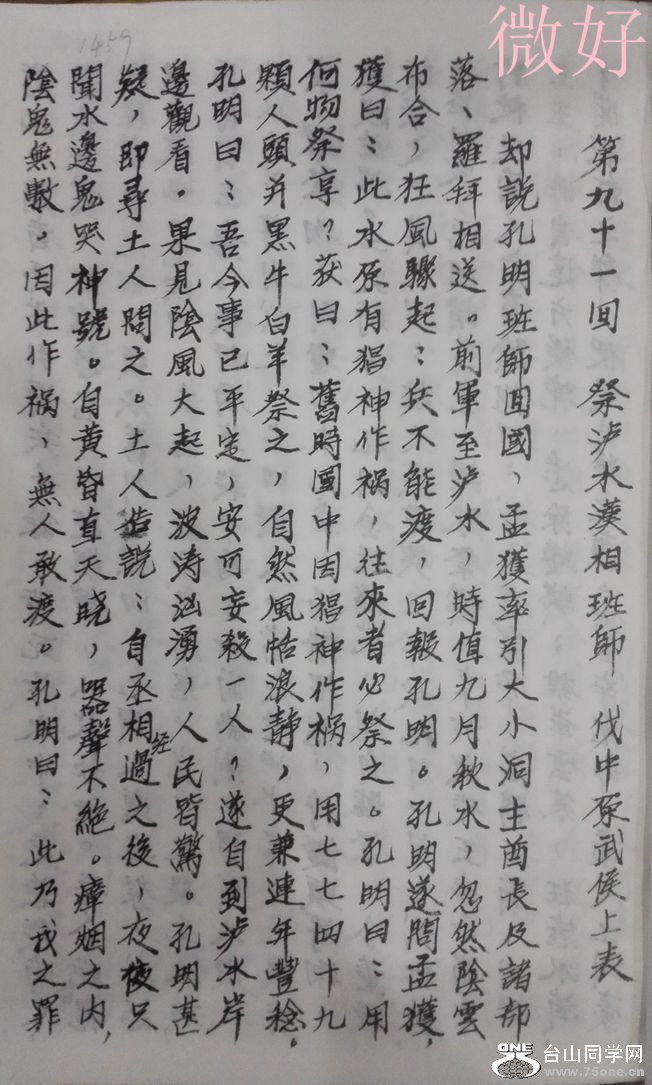 微好
1459
第九十一回 祭泸水漢相班師 伐中原武侯上表
却說孔明班師囬國，孟獲率引大小洞主酋長及諸部
落、羅拜相送。前軍至泸水，時值九月秋水，忽然陰雲
布合，狂風驟起：兵不能渡，回報孔明。孔明遂問孟獲，
獲曰：此水原有猖神作祸，往來者必祭之。孔明曰：用
何物祭享？获曰：舊時國中因猖神作祸，用七七四十九
顆人頭并黑牛白羊祭之，自然風恬浪静，更兼連年豐稔。
孔明曰：吾今事已平定，安可妄殺一人？遂自到泸水岸
邊觀看。果見陰風大起，波涛汹湧，人民皆驚。孔明甚
疑，即尋土人問之。土人告說：自丞相經過之後，夜夜只
聞水邊鬼哭神號。自黄昏直天晓，器聲不絶。瘴烟之内，
陰鬼無數，因此作祸、無人敢渡。孔明曰：此乃我之罪
ONE
台山同学网
www.75one.cn